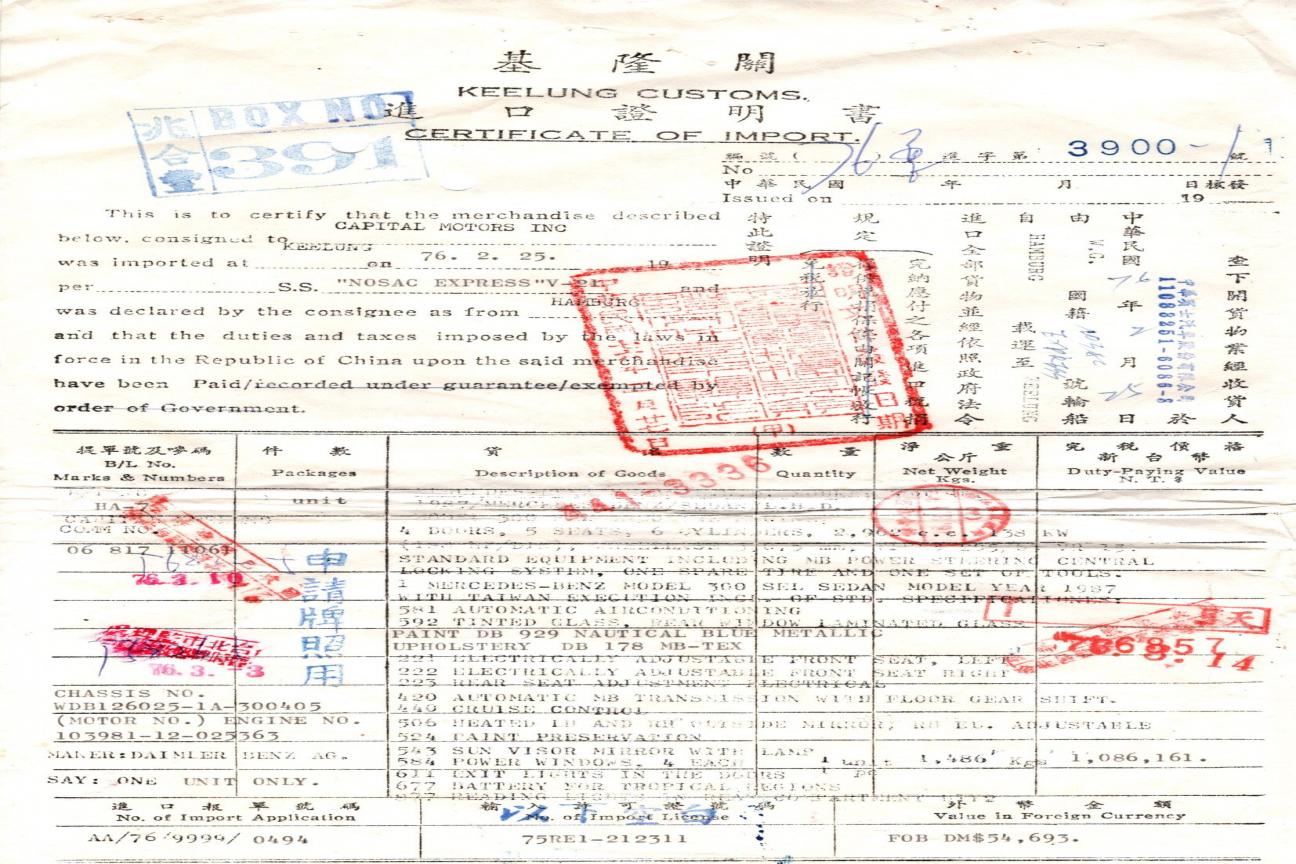 基隆關
KEELUNG CUSTOMS.
進口證明書
CERTIFICATE OF IMPORT.
北合臺
BOX NO
391
編號( 76 ) 進字第 3900-1 號
No
中華民國 年 月 日核發
Issued on 19
This is to certify that the merchandise described
CAPITAL MOTORS INC
below, consigned to
KEELUNG
was imported at on 76. 2. 25. 19
per S.S. "NOSAC EXPRESS"V-21 and
HAMBURG
was declared by the consignee as from
and that the duties and taxes imposed by the laws in
force in the Republic of China upon the said merchandise
have been Paid/recorded under guarantee/exempted by
order of Government.
查下開貨物業經收貨人
於
1108251-6086-8
中華民國 76 年 2 月 25 日
由 W.G. 國籍 號輪船
自 HAMBURG 載運至 KEELUNG
進口全部貨物並經依照政府法令
規定
完納應付之各項進口稅捐
特此證明
提單號及嘜碼
B/L No.
Marks & Numbers
件數
Packages
貨名
Description of Goods
數量
Quantity
淨重
公斤
Net Weight
Kgs.
完稅價格
新台幣
Duty-Paying Value
N.T.$
441-3336
unit
HA-7
COMM NO.
4 DOORS, 5 SEATS, 6 CYLINDERS, c.c. 138 KW
06 817
STANDARD EQUIPMENT INCLUDING MB POWER STEERING CENTRAL
LOCKING SYSTEM, ONE SPARE TIRE AND ONE SET OF TOOLS.
1 MERCEDES-BENZ MODEL 300 SEL SEDAN MODEL YEAR 1987
WITH TAIWAN EXECUTION INCL OF STD. SPECIFICATIONES:
581 AUTOMATIC AIRCONDITIONING
592 TINTED GLASS, REAR WINDOW LAMINATED GLASS
PAINT DB 929 NAUTICAL BLUE METALLIC
UPHOLSTERY DB 178 MB-TEX
221 ELECTRICALLY ADJUSTABLE FRONT SEAT, LEFT
222 ELECTRICALLY ADJUSTABLE FRONT SEAT RIGHT
223 REAR SEAT ADJUSTMENT ELECTRICAL
420 AUTOMATIC MB TRANSMISSION WITH FLOOR GEAR SHIFT.
440 CRUISE CONTROL
506 HEATED LH AND RH OUTSIDE MIRROR, RH EL. ADJUSTABLE
524 PAINT PRESERVATION
543 SUN VISOR MIRROR WITH LAMP
584 POWER WINDOWS, 4 EACH 1 unit 1,486 Kgs 1,086,161.
611 EXIT LIGHTS IN THE DOORS 1 pc
677 BATTERY FOR TROPICAL REGIONS
申請牌照用
76.3.10
76.3.13
766857
CHASSIS NO.
WDB126025-1A-300405
(MOTOR NO.) ENGINE NO.
103981-12-025363
MAKER:DAIMLER BENZ AG.
SAY: ONE UNIT ONLY.
以下空白
進口報單號碼
No. of Import Application
輸入許可證號碼
No. of Import License
外幣金額
Value in Foreign Currency
AA/76/9999/ 0494
75RE1-212311
FOB DM$54,693.